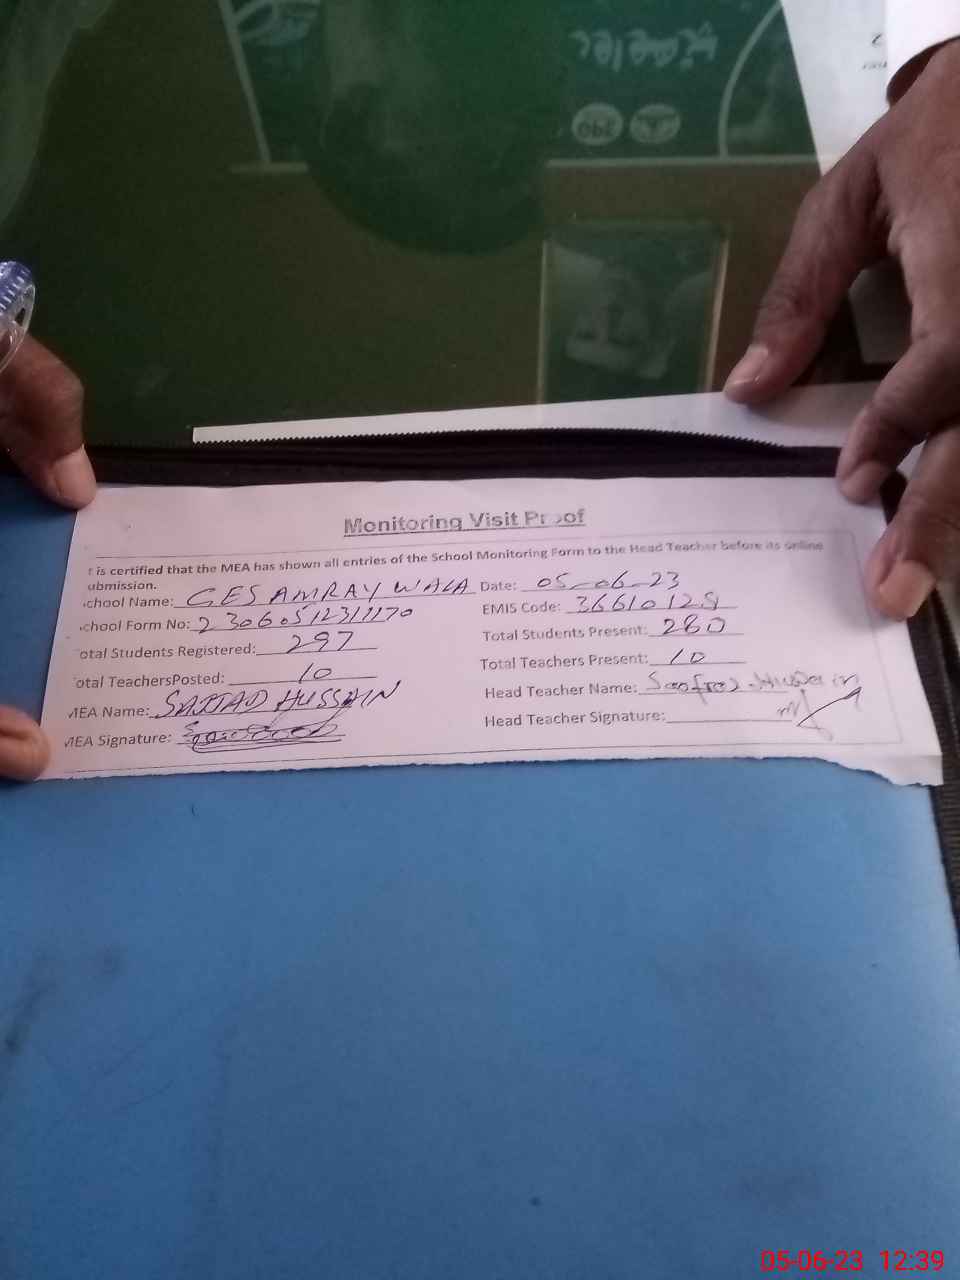 Monitoring Visit Proof
t is certified that the MEA has shown all entries of the School Monitoring Form to the Head Teacher before its online
ubmission.
chool Name: GES AMRAY WALA Date: 05-06-23
chool Form No: 2306051231117​0 EMIS Code: 36610129
otal Students Registered: 297 Total Students Present: 280
otal TeachersPosted: 10 Total Teachers Present: 10
MEA Name: SAJJAD HUSSAIN Head Teacher Name: Hussain
MEA Signature: Head Teacher Signature:
240
05-06-23 12:39